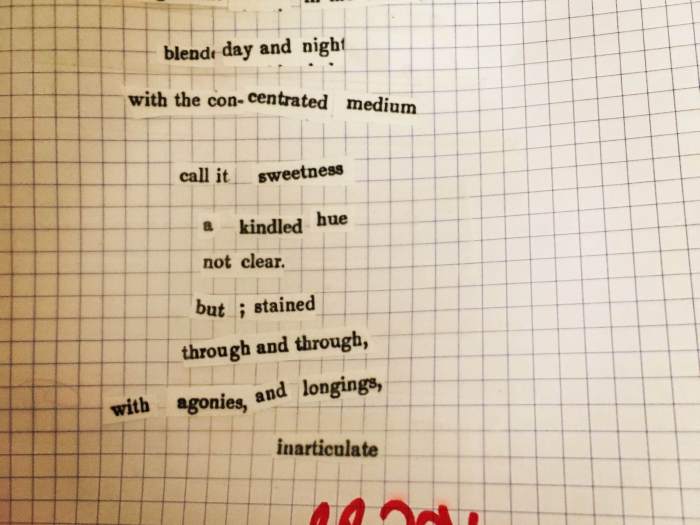 day and night
with the con- centrated medium
call it sweetness
a kindled hue
not clear.
but ; stained
through and through,
with agonies, and longings,
inarticulate